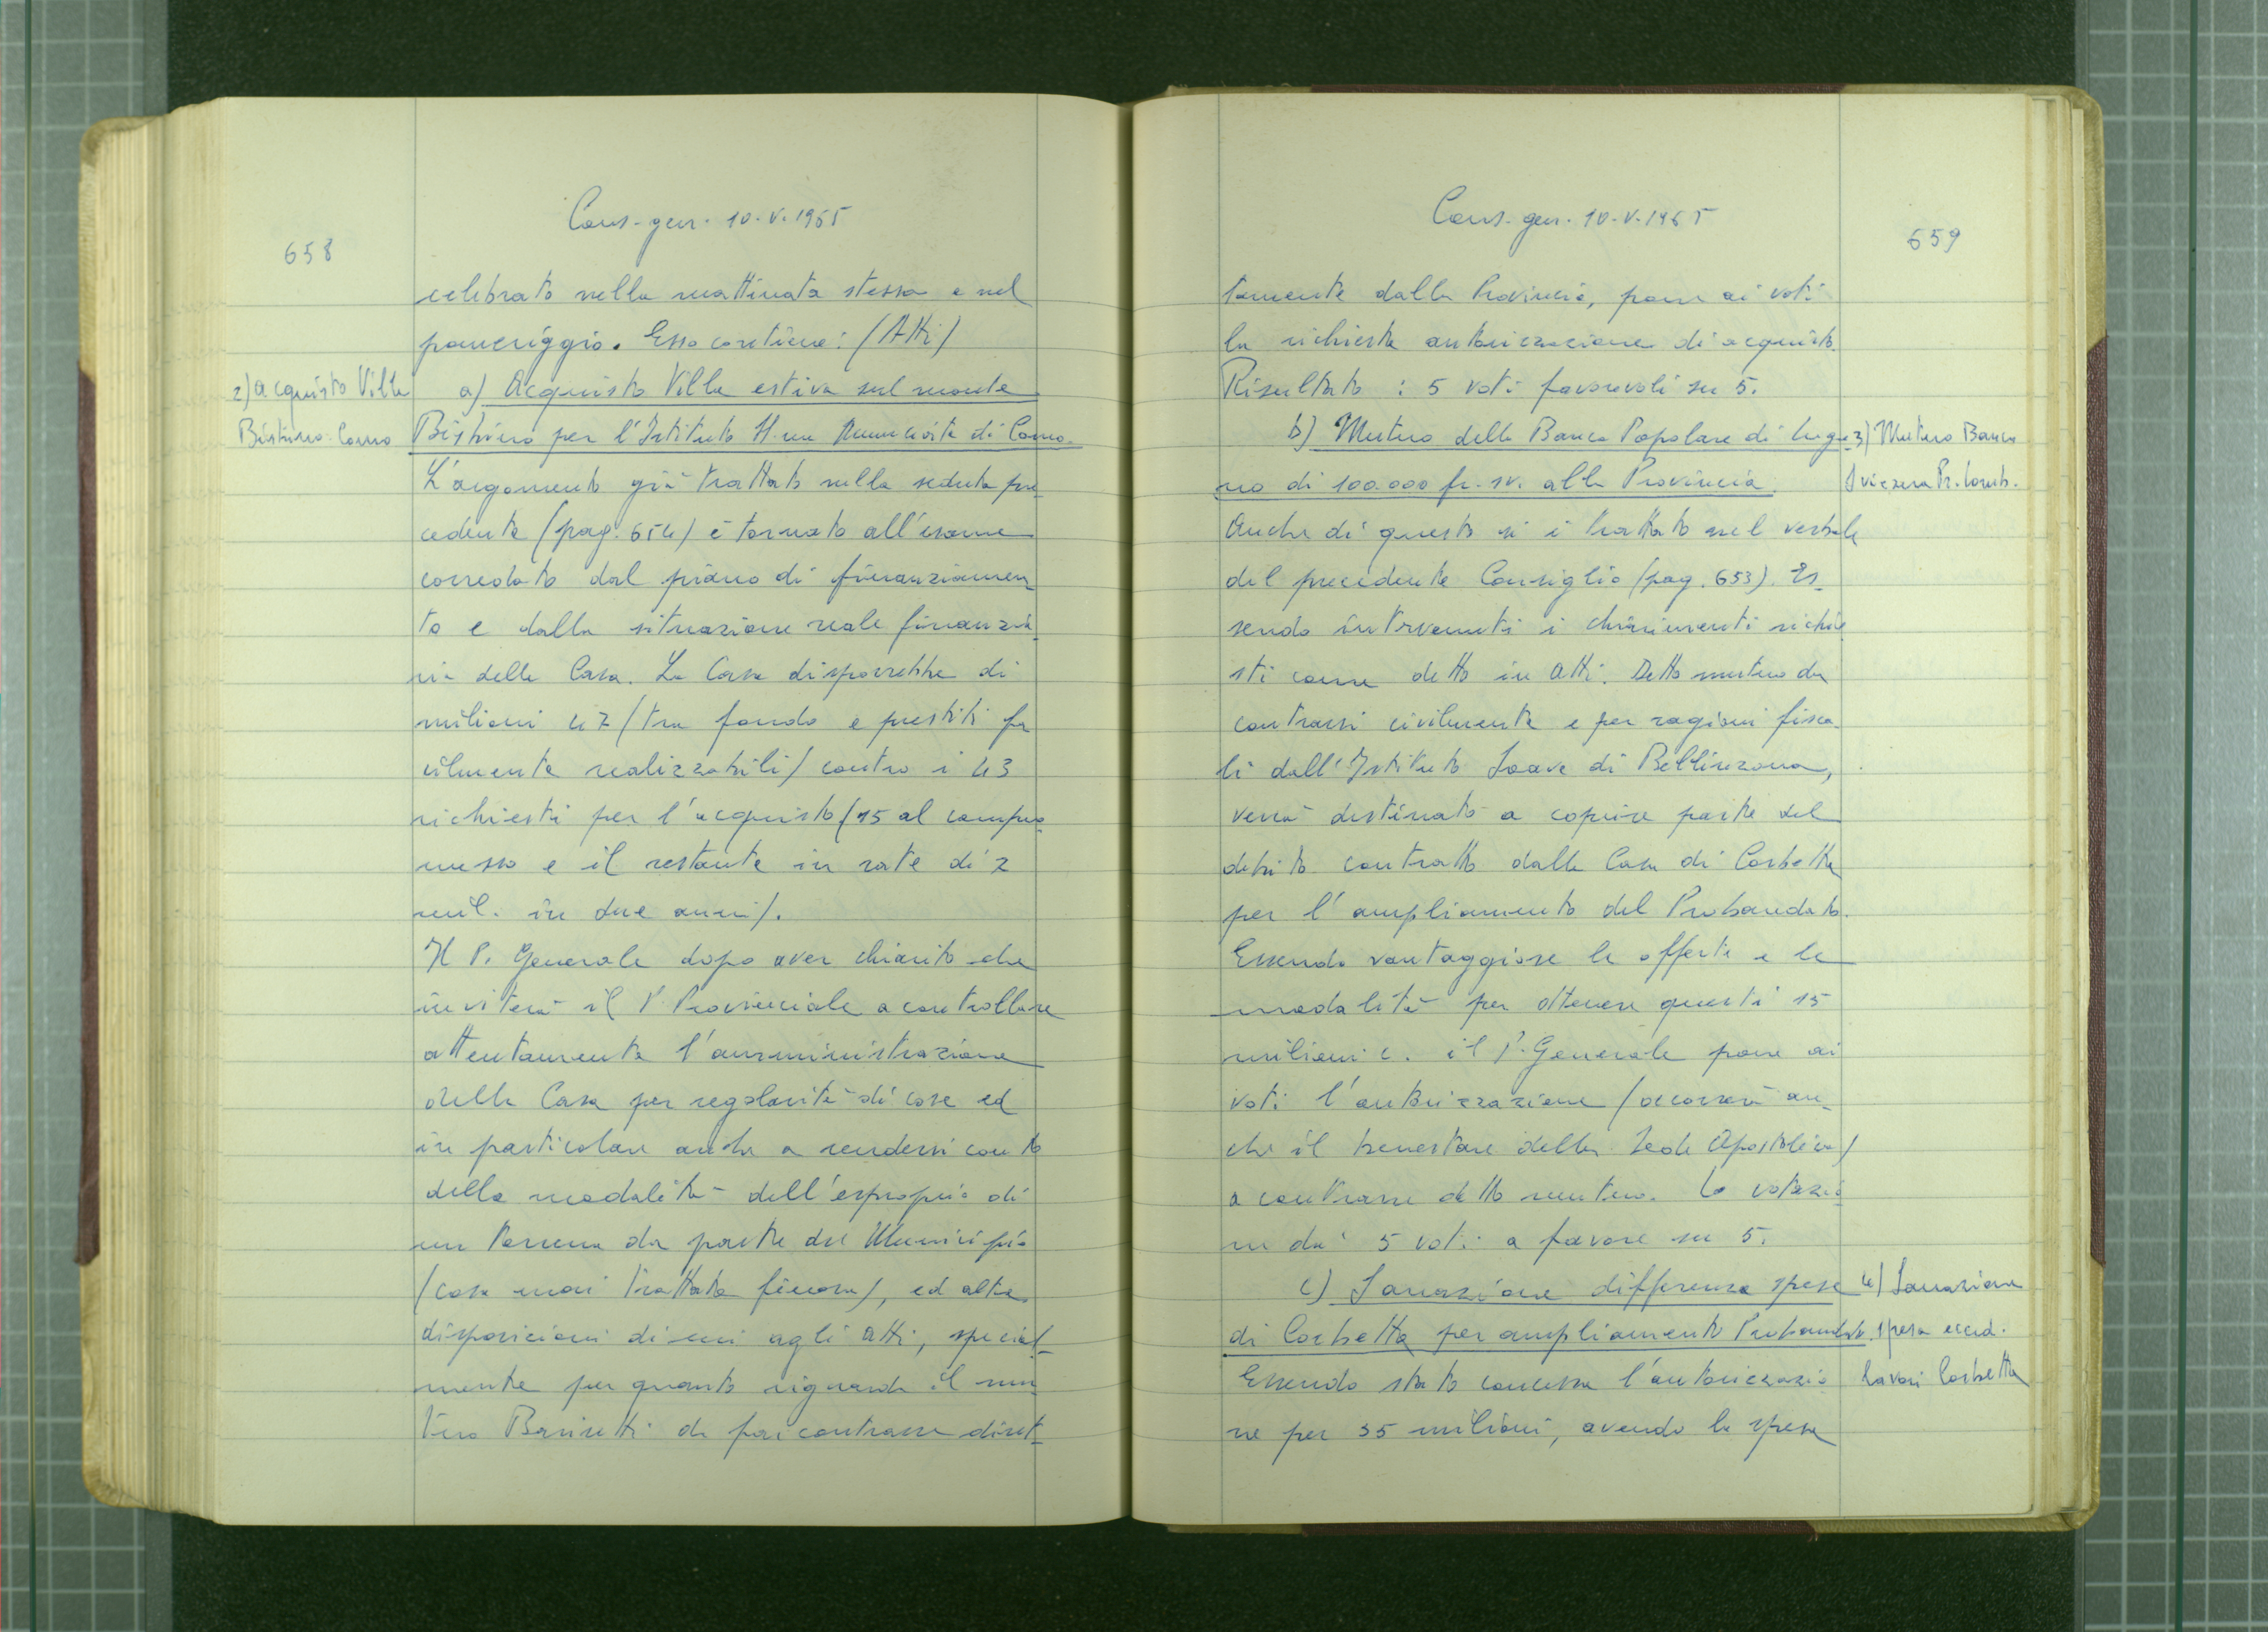 Cons. gen. 10.V.1965
658
celebrato nella mattinata stessa e nel
pomeriggio. Esso contiene: (Atti)
2) Acquisto Villa
Bistino Como
a) Acquisto Villa estiva sul monte
Bistino per l'Istituto SS.ma Annunciata di Como.
L'argomento già trattato nella seduta pre
cedente (pag. 654) è tornato all'esame
corredato dal piano di finanziamen_
to e dalla situazione reale finanzia_
ria della Casa. La Casa disporrebbe di
milioni 47 (tra fondo e prestiti fa
cilmente realizzabili) contro i 43
richiesti per l'acquisto (15 al compro_
messo e il restante in rate di 2
mil. in due anni).
Il P. Generale dopo aver chiarito che
inviterà il P. Provinciale a controllare
attentamente l'amministrazione
della Casa per regolarità di cose ed
in particolare anche a rendersi conto
della modalità dell'esproprio di
un terreno da parte del Municipio
(cosa mai trattata finora), ed altre
disposizioni di cui agli Atti, special_
mente per quanto riguarda il mu_
tuo da poi contrarre diret_
Cons. gen. 10.V.1965
659
tamente dalla Provincia, pone ai voti
la richiesta autorizzazione di acquisto.
Risultato : 5 voti favorevoli su 5.
b) Mutuo della Banca Popolare di Luga_
no di 100.000 fr. sv. alla Provincia.
3) Mutuo Banca
Svizzera Pr. Lomb.
Anche di questo si è trattato nel verbale
del precedente Consiglio (pag. 653). Es_
sendo intervenuti i chiarimenti richie
sti come detto in Atti. Detto mutuo da
contrarsi civilmente e per ragioni fisca_
li dall'Istituto Soave di Bellinzona,
verrà destinato a coprire parte del
debito contratto dalla Casa di Corbetta
per l'ampliamento del Probandato.
Essendo vantaggiose le offerte e le
modalità per ottenere questi 15
milioni c. il P. Generale pone ai
voti l'autorizzazione (occorrerà an_
che il benestare della Sede Apostolica)
a contrarre detto mutuo. La votazio
ne dà 5 voti a favore su 5.
c) Sanazione differenza spese
di Corbetta per ampliamento Probandato.
4) Sanazione
spesa ecced.
lavori Corbetta
Essendo stata concessa l'autorizzazio
ne per 35 milioni, avendo la spesa